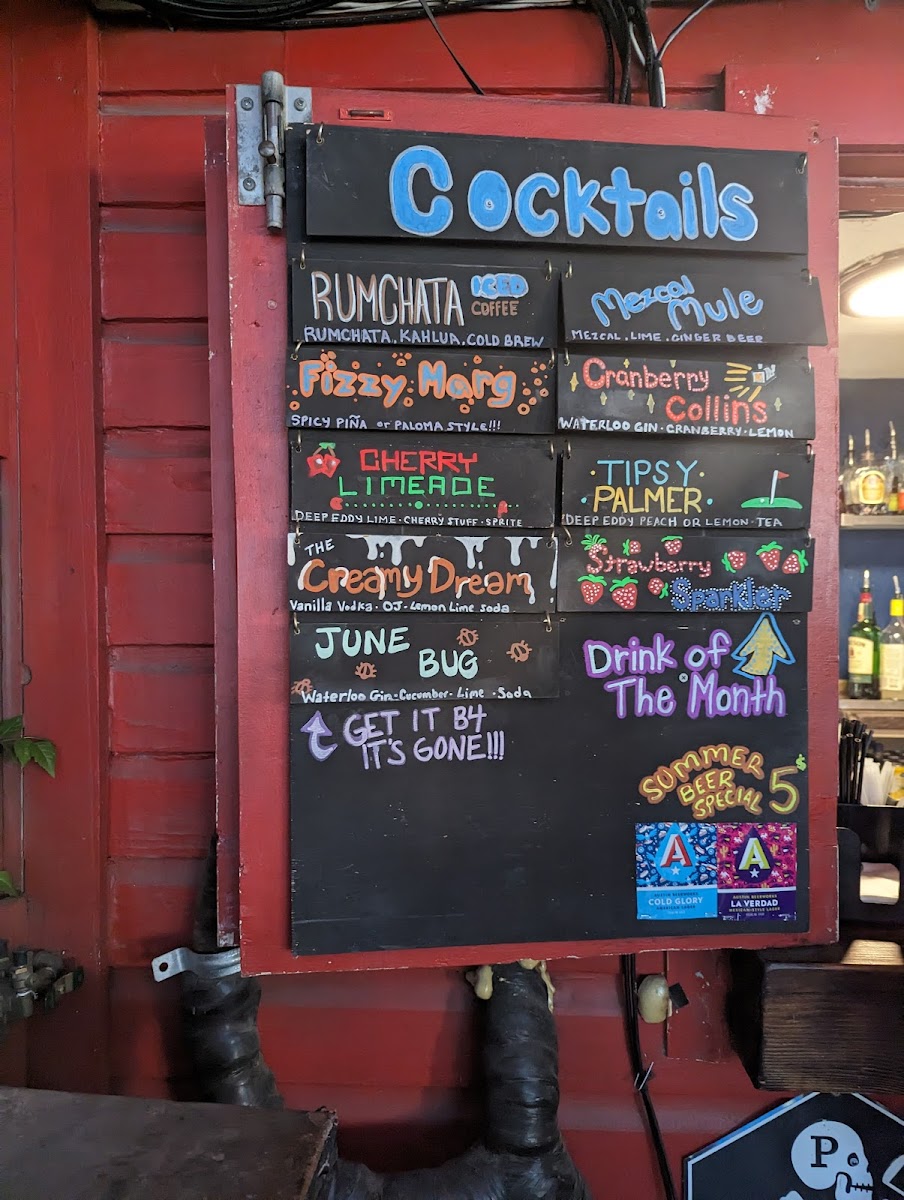 Cocktails
RUMCHATA ICED
COFFEE
RUMCHATA . KAHLUA . COLD BREW
Mezcal
Mule
MEZCAL . LIME . GINGER BEER
Fizzy Marg
SPICY PIÑA or PALOMA STYLE!!!
Cranberry
Collins
WATERLOO GIN · CRANBERRY · LEMON
CHERRY
LIMEADE
DEEP EDDY LIME · CHERRY STUFF · SPRITE
TIPSY
PALMER
DEEP EDDY PEACH OR LEMON · TEA
THE
Creamy Dream
Vanilla Vodka · OJ · Lemon Lime soda
Strawberry
Sparkler
JUNE
BUG
Waterloo Gin · Cucumber · Lime · Soda
Drink of
The Month
GET IT B4
IT'S GONE!!!
SUMMER
BEER
SPECIAL 5$
A
AUSTIN BEERWORKS
COLD GLORY
A
AUSTIN BEERWORKS
LA VERDAD
MEXICAN-STYLE LAGER
P